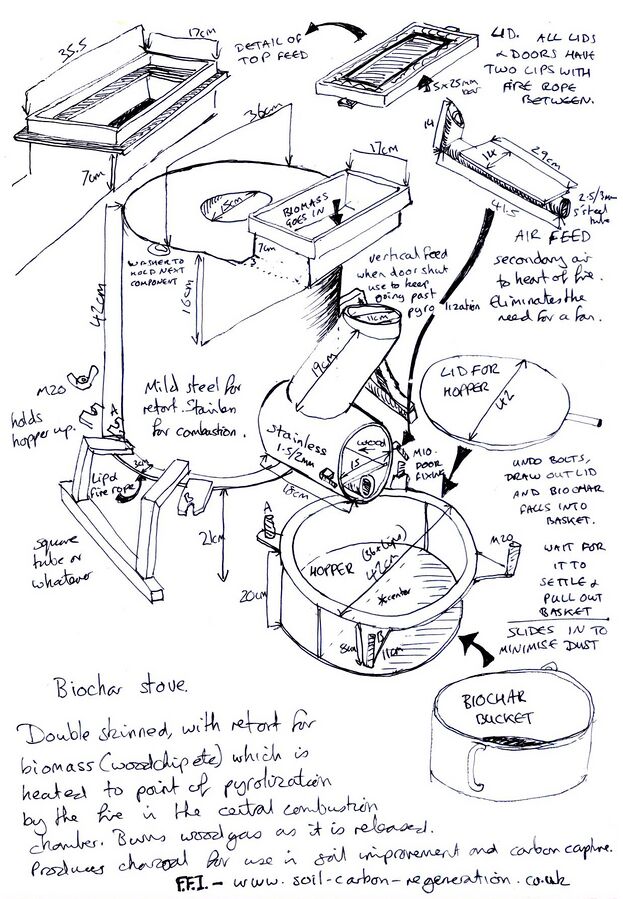 35.5
17cm
7cm
DETAIL OF
TOP FEED
LID. ALL LIDS
& DOORS HAVE
TWO LIPS WITH
FIRE ROPE
BETWEEN.
5x25mm
bar
14
14
29cm
41.5
2.5/3mm
5" steel
tube
AIR FEED
secondary air
to heart of fire.
Eliminates the
need for a fan.
36cm
15cm
17cm
BIOMASS
GOES IN
7cm
WASHER TO
HOLD NEXT
COMPONENT
16cm
42cm
vertical feed
when door shut
use to keep
going past
pyrolization
11cm
19cm
M20
holds
hopper up.
A
Mild steel for
retort. Stainless
for combustion.
Stainless
1.5/2mm
wood
15
18cm
M10.
DOOR
FIXING
LID FOR
HOPPER
42
Lip &
fire rope
3cm
B
square
tube or
whatever
21cm
A
20cm
HOPPER
(36+lips)
42cm
*center
8cm
11cm
B
M20
UNDO BOLTS,
DRAW OUT LID
AND BIOCHAR
FALLS INTO
BASKET.
WAIT FOR
IT TO
SETTLE &
PULL OUT
BASKET
SLIDES IN TO
MINIMISE DUST
BIOCHAR
BUCKET
Biochar stove.
Double skinned, with retort for
biomass (woodchip etc) which is
heated to point of pyrolization
by the fire in the central combustion
chamber. Burns woodgas as it is released.
Produces charcoal for use in soil improvement and carbon capture.
F.F.I. - www.soil-carbon-regeneration.co.uk